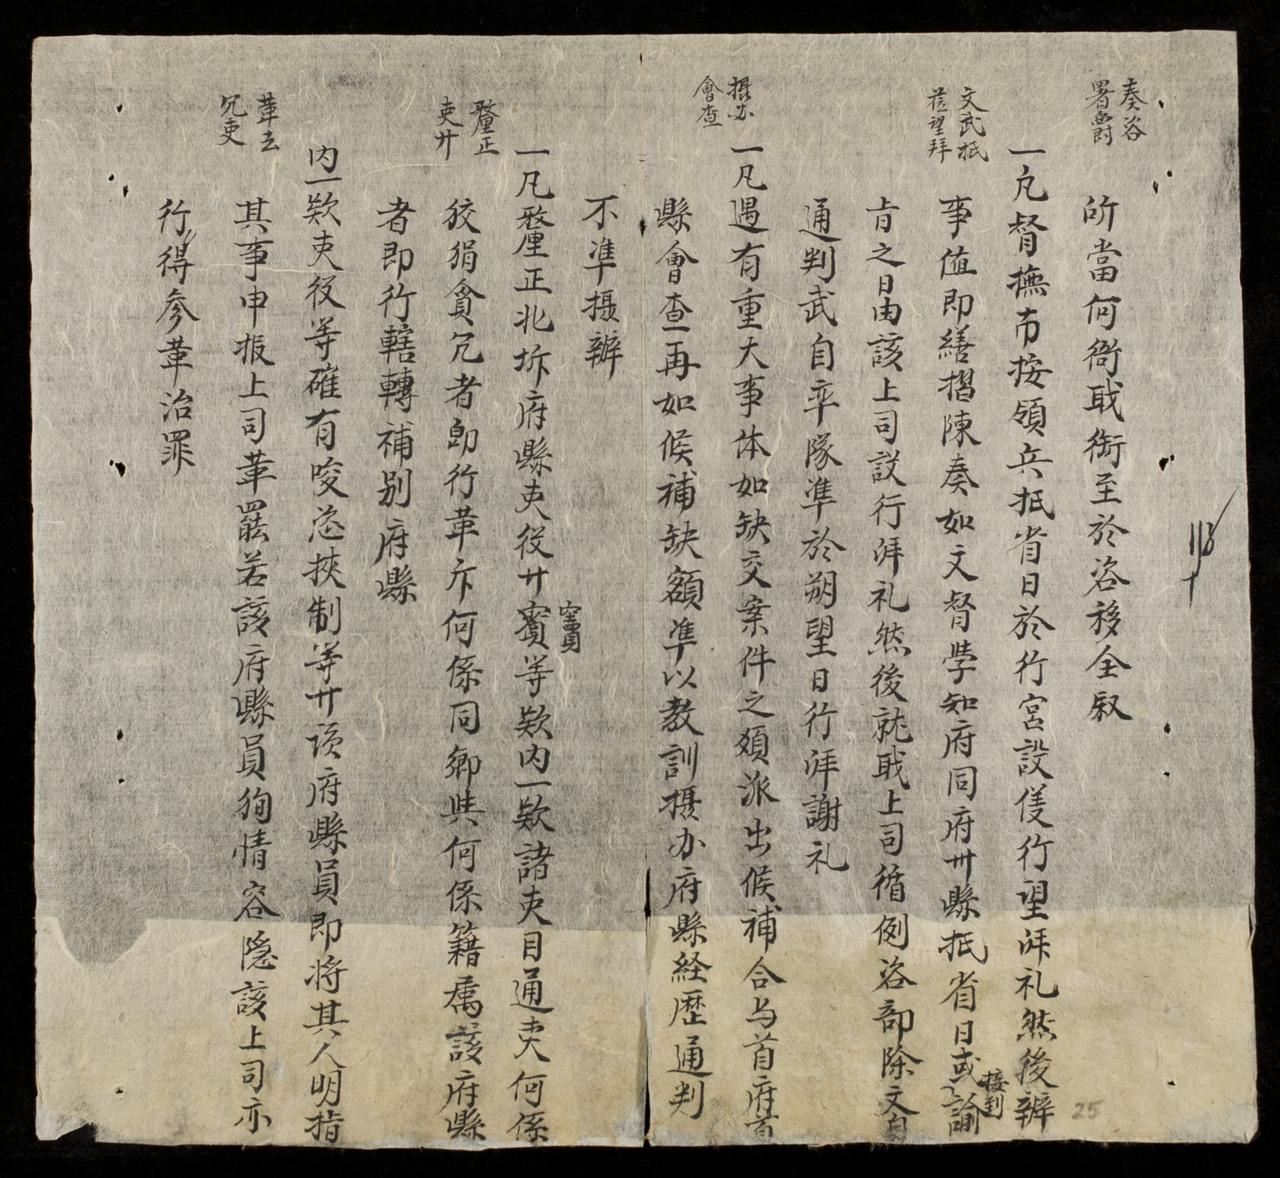 奏咨
署爵
所當何衙職銜至於咨移全叙
文武抵
莅望拜
一凡督撫布按領兵抵省日於行宮設㒒行望拜礼然後辦
事值即繕摺陳奏如文督學知府同府州縣抵省日或諭
接到
旨之日由該上司設行拜礼然後就職上司循例咨部除文自
通判武自率隊準於朔望日行拜謝礼
摄办
會查
一凡遇有重大事体如缺交案件之類派出候補合与首府首
縣會查再如候補缺額準以教訓摄办府縣経歷通判
不準摄辦
釐正
吏廾
一凡釐正北圻府縣吏役廾賓等欵内一欵諸吏目通吏何係
室員
狡猾貪冗者即行革斥何係同鄉與何係籍属該府縣
者即行轄轉補别府縣
革去
冗吏
内一欵吏役等確有唆恣挾制等廾該府縣員即将其人明指
其事申報上司革罷若該府縣員徇情容隠該上司亦
行得参革治罪
25